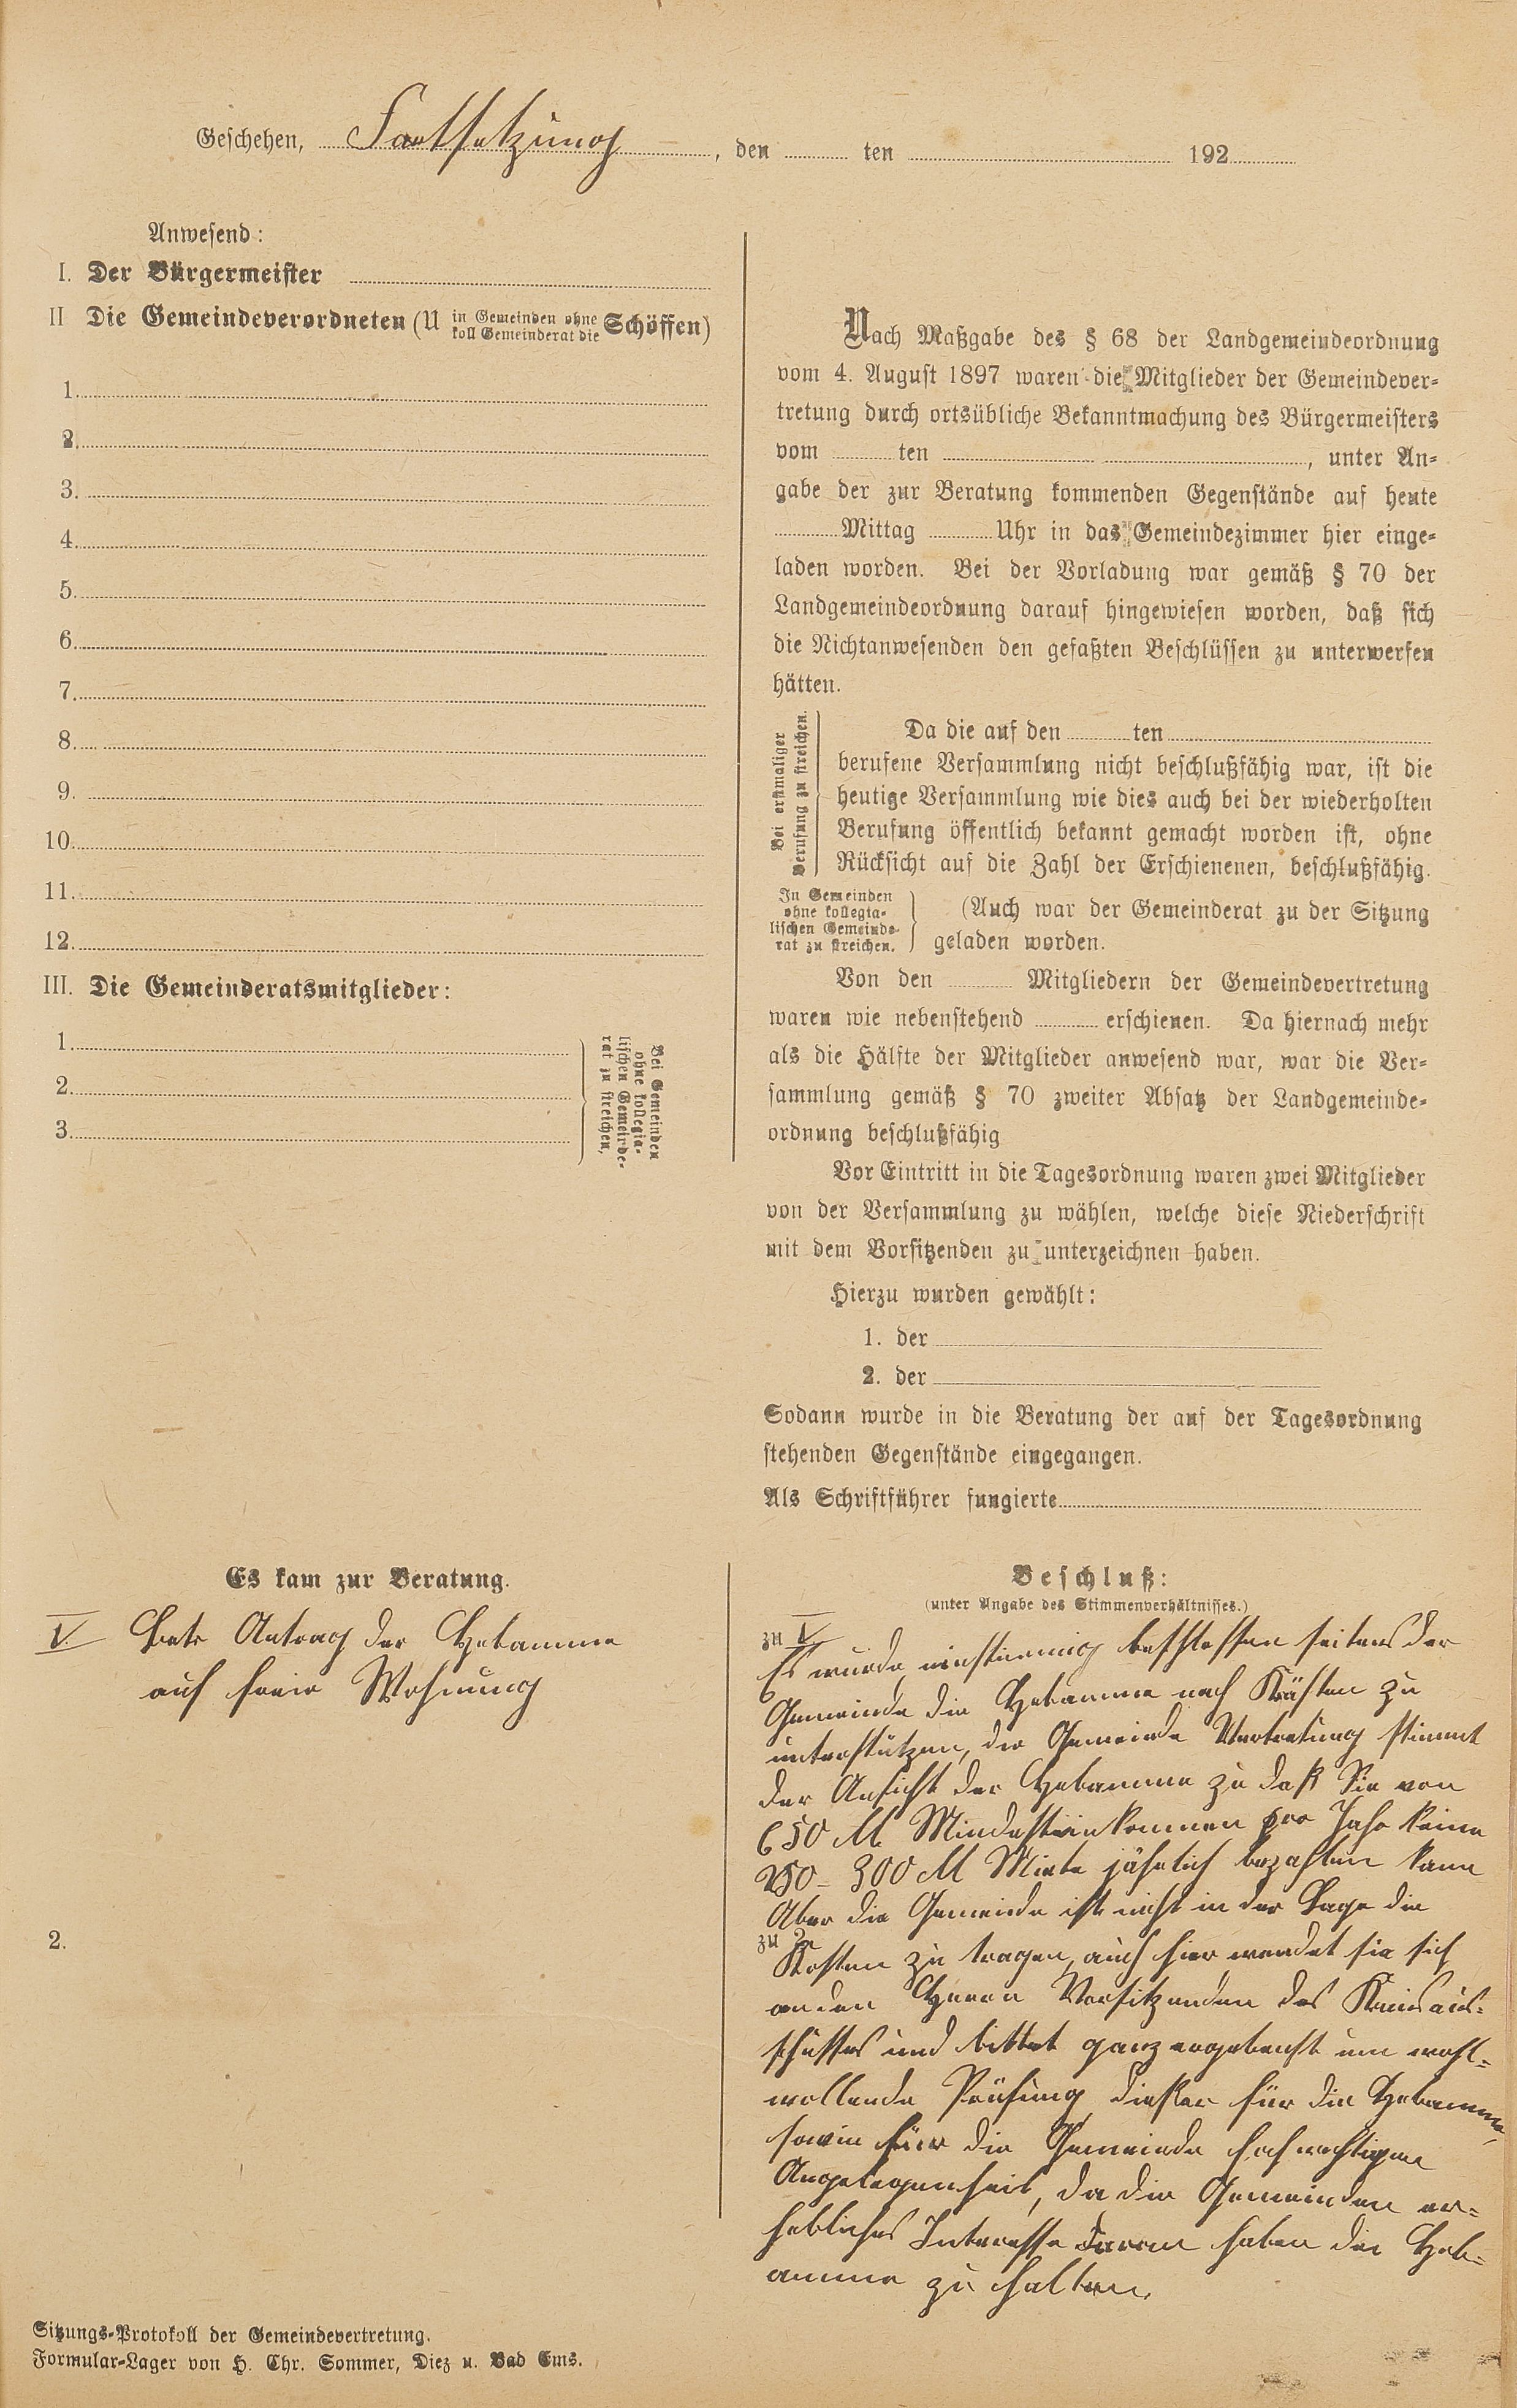 Geschehen, Fortsetzung, den ten 192
Anwesend:
I. Der Bürgermeister
II Die Gemeindeverordneten (U in Gemeinden ohne koll Gemeinderat die Schöffen)
1.
2.
3.
4.
5.
6.
7.
8.
9.
10.
11.
12.
III. Die Gemeinderatsmitglieder:
1.
2.
3.
Bei Gemeinden
ohne kollegia-
lischen Gemeinde-
rat zu streichen.
Nach Maßgabe des § 68 der Landgemeindeordnung
vom 4. August 1897 waren die Mitglieder der Gemeindever-
tretung durch ortsübliche Bekanntmachung des Bürgermeisters
vom ten , unter An-
gabe der zur Beratung kommenden Gegenstände auf heute
Mittag Uhr in das Gemeindezimmer hier einge-
laden worden. Bei der Vorladung war gemäß § 70 der
Landgemeindeordnung darauf hingewiesen worden, daß sich
die Nichtanwesenden den gefaßten Beschlüssen zu unterwerfen
hätten.
Bei erstmaliger
Berufung zu streichen.
Da die auf den ten
berufene Versammlung nicht beschlußfähig war, ist die
heutige Versammlung wie dies auch bei der wiederholten
Berufung öffentlich bekannt gemacht worden ist, ohne
Rücksicht auf die Zahl der Erschienenen, beschlußfähig.
In Gemeinden
ohne kollegia-
lischen Gemeinde-
rat zu streichen.
(Auch war der Gemeinderat zu der Sitzung
geladen worden.
Von den Mitgliedern der Gemeindevertretung
waren wie nebenstehend erschienen. Da hiernach mehr
als die Hälfte der Mitglieder anwesend war, war die Ver-
sammlung gemäß § 70 zweiter Absatz der Landgemeinde-
ordnung beschlußfähig
Vor Eintritt in die Tagesordnung waren zwei Mitglieder
von der Versammlung zu wählen, welche diese Niederschrift
mit dem Vorsitzenden zu unterzeichnen haben.
Hierzu wurden gewählt:
1. der
2. der
Sodann wurde in die Beratung der auf der Tagesordnung
stehenden Gegenstände eingegangen.
Als Schriftführer fungierte
Es kam zur Beratung.
V. Betr Antrag der Hebamme
auf freie Wohnung
2.
Beschluß:
(unter Angabe des Stimmenverhältnisses.)
zu V
Es wurde einstimmig beschlossen seitens der
Gemeinde die Hebamme nach Kräften zu
unterstützen, die Gemeinde Vertretung stimmt
der Ansicht der Hebamme zu daß Sie von
650 M Mindesteinkommen pro Jahr keine
250 - 300 M Miete jährlich bezahlen kann
Aber die Gemeinde ist nicht in der Lage die
zu 2
Kosten zu tragen, auch hier wendet sie sich
an den Herrn Vorsitzenden des Kreisaus-
schusses und bittet ganz ergebenst um wohl-
wollende Prüfung dieser für die Hebamme,
sowie für die Gemeinde hochwichtigen
Angelegenheit, da die Gemeinden er-
hebliches Interesse daran haben die Heb-
amme zu halten.
Sitzungs-Protokoll der Gemeindevertretung.
Formular-Lager von H. Chr. Sommer, Diez u. Bad Ems.